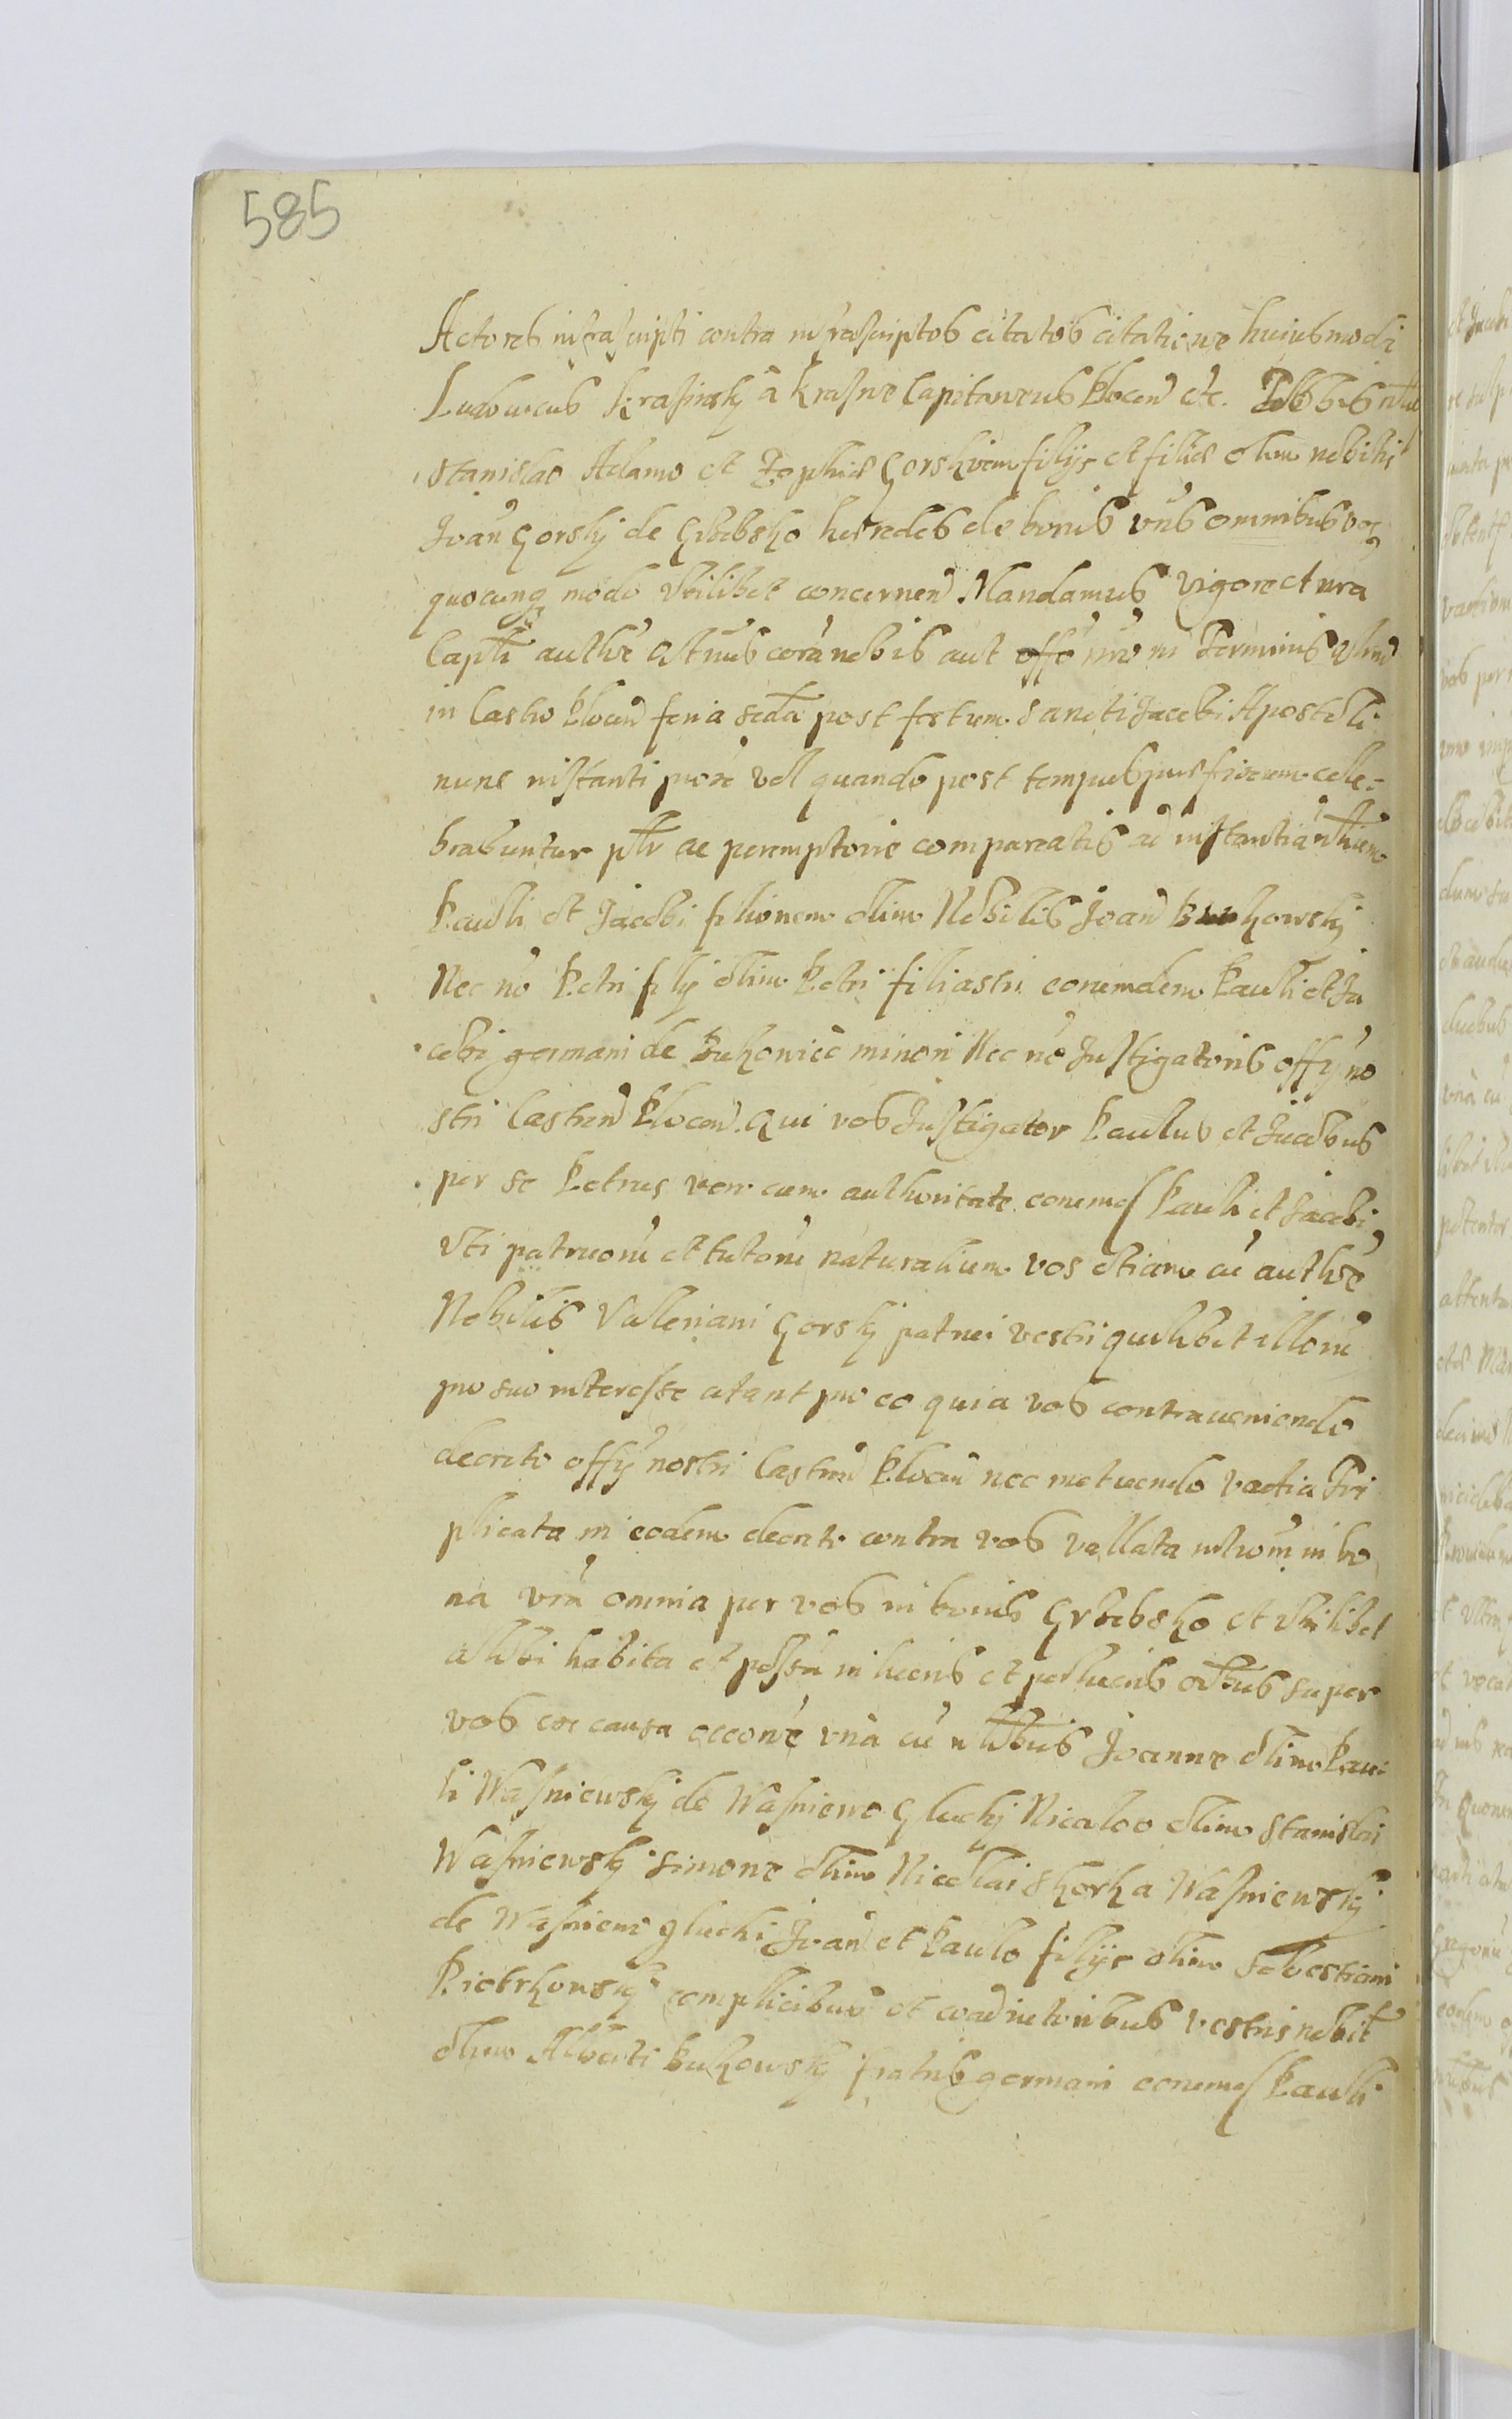 585
Actores infrascripti contra infrascriptos citatos citatione huiusmodi
Ludouicus Krasinsky à Krasne Capitaneus Plocen̄ etc. Vobis
Stanislao Adamo et Zophiæ Gorskiem filijs et filiæ olim nobilis
Joan̄ Gorskj de Grzebsko heredes de bonis vr̄is omnibus vos
quocunq modo vtilibet concernen̄ Mandamus vigore et nr̄a
Capit̄ auth̄e Qt̄nus corā nobis aut offō nr̄o in Terminis
in Castro Plocen̄ feria secd̄a post festum Sancti Jacobi Apostoli
nunc instanti prox̄e vel quando post tempus prius friuum cele-
brabuntur pt̄r ac peremptorie compareatis ad instantiā
Pauli et Jacobi filiorum olim Nobilis Joan̄ Bukowskj
Nec nō Petri filij olim Petri filiastri eorumdem Pauli et Ja
cobi germani de Bukowiec minori Nec nō Instigatoris offij no
stri Castren̄ Plocen̄. Qui vos Instigator Paulus et Jacobus
per se Petrus vero cum authoritate eorumd Pauli et Jacobi
vti patruorū et tutorū naturalium vos etiam cū auth̄e
Nobilis Valleriani Gorskj patrui vestri quilibet illorū
pro suo interesse citant pro eo quia vos contraueniendo
decreto offij nostri Castren̄ Plocen̄ nec metuendo vadia Tri
plicata in eodem decreto contra vos vallata in bo
na vr̄a omnia per vos in bonis Grzebsko et vbilibet
alibi habita et possā in lucris et perlucris omībus super
vos ex causa occōnē vnà cū nlibus Joanne olim Pau-
li Wasniewskj de Wasniewo Gluchj Nicolao olim Stanislai
Wasniewskj Simone olim Nicolai Skorka Wasniewskj
de Wasniewo gluchi Joan̄ et Paulo filijs olim Sebestiani
Piotrkowskj complicibus et coadiutoribus vestris nobil̄
olim Alberti Bukowskj fratris germani eorumd Pauli